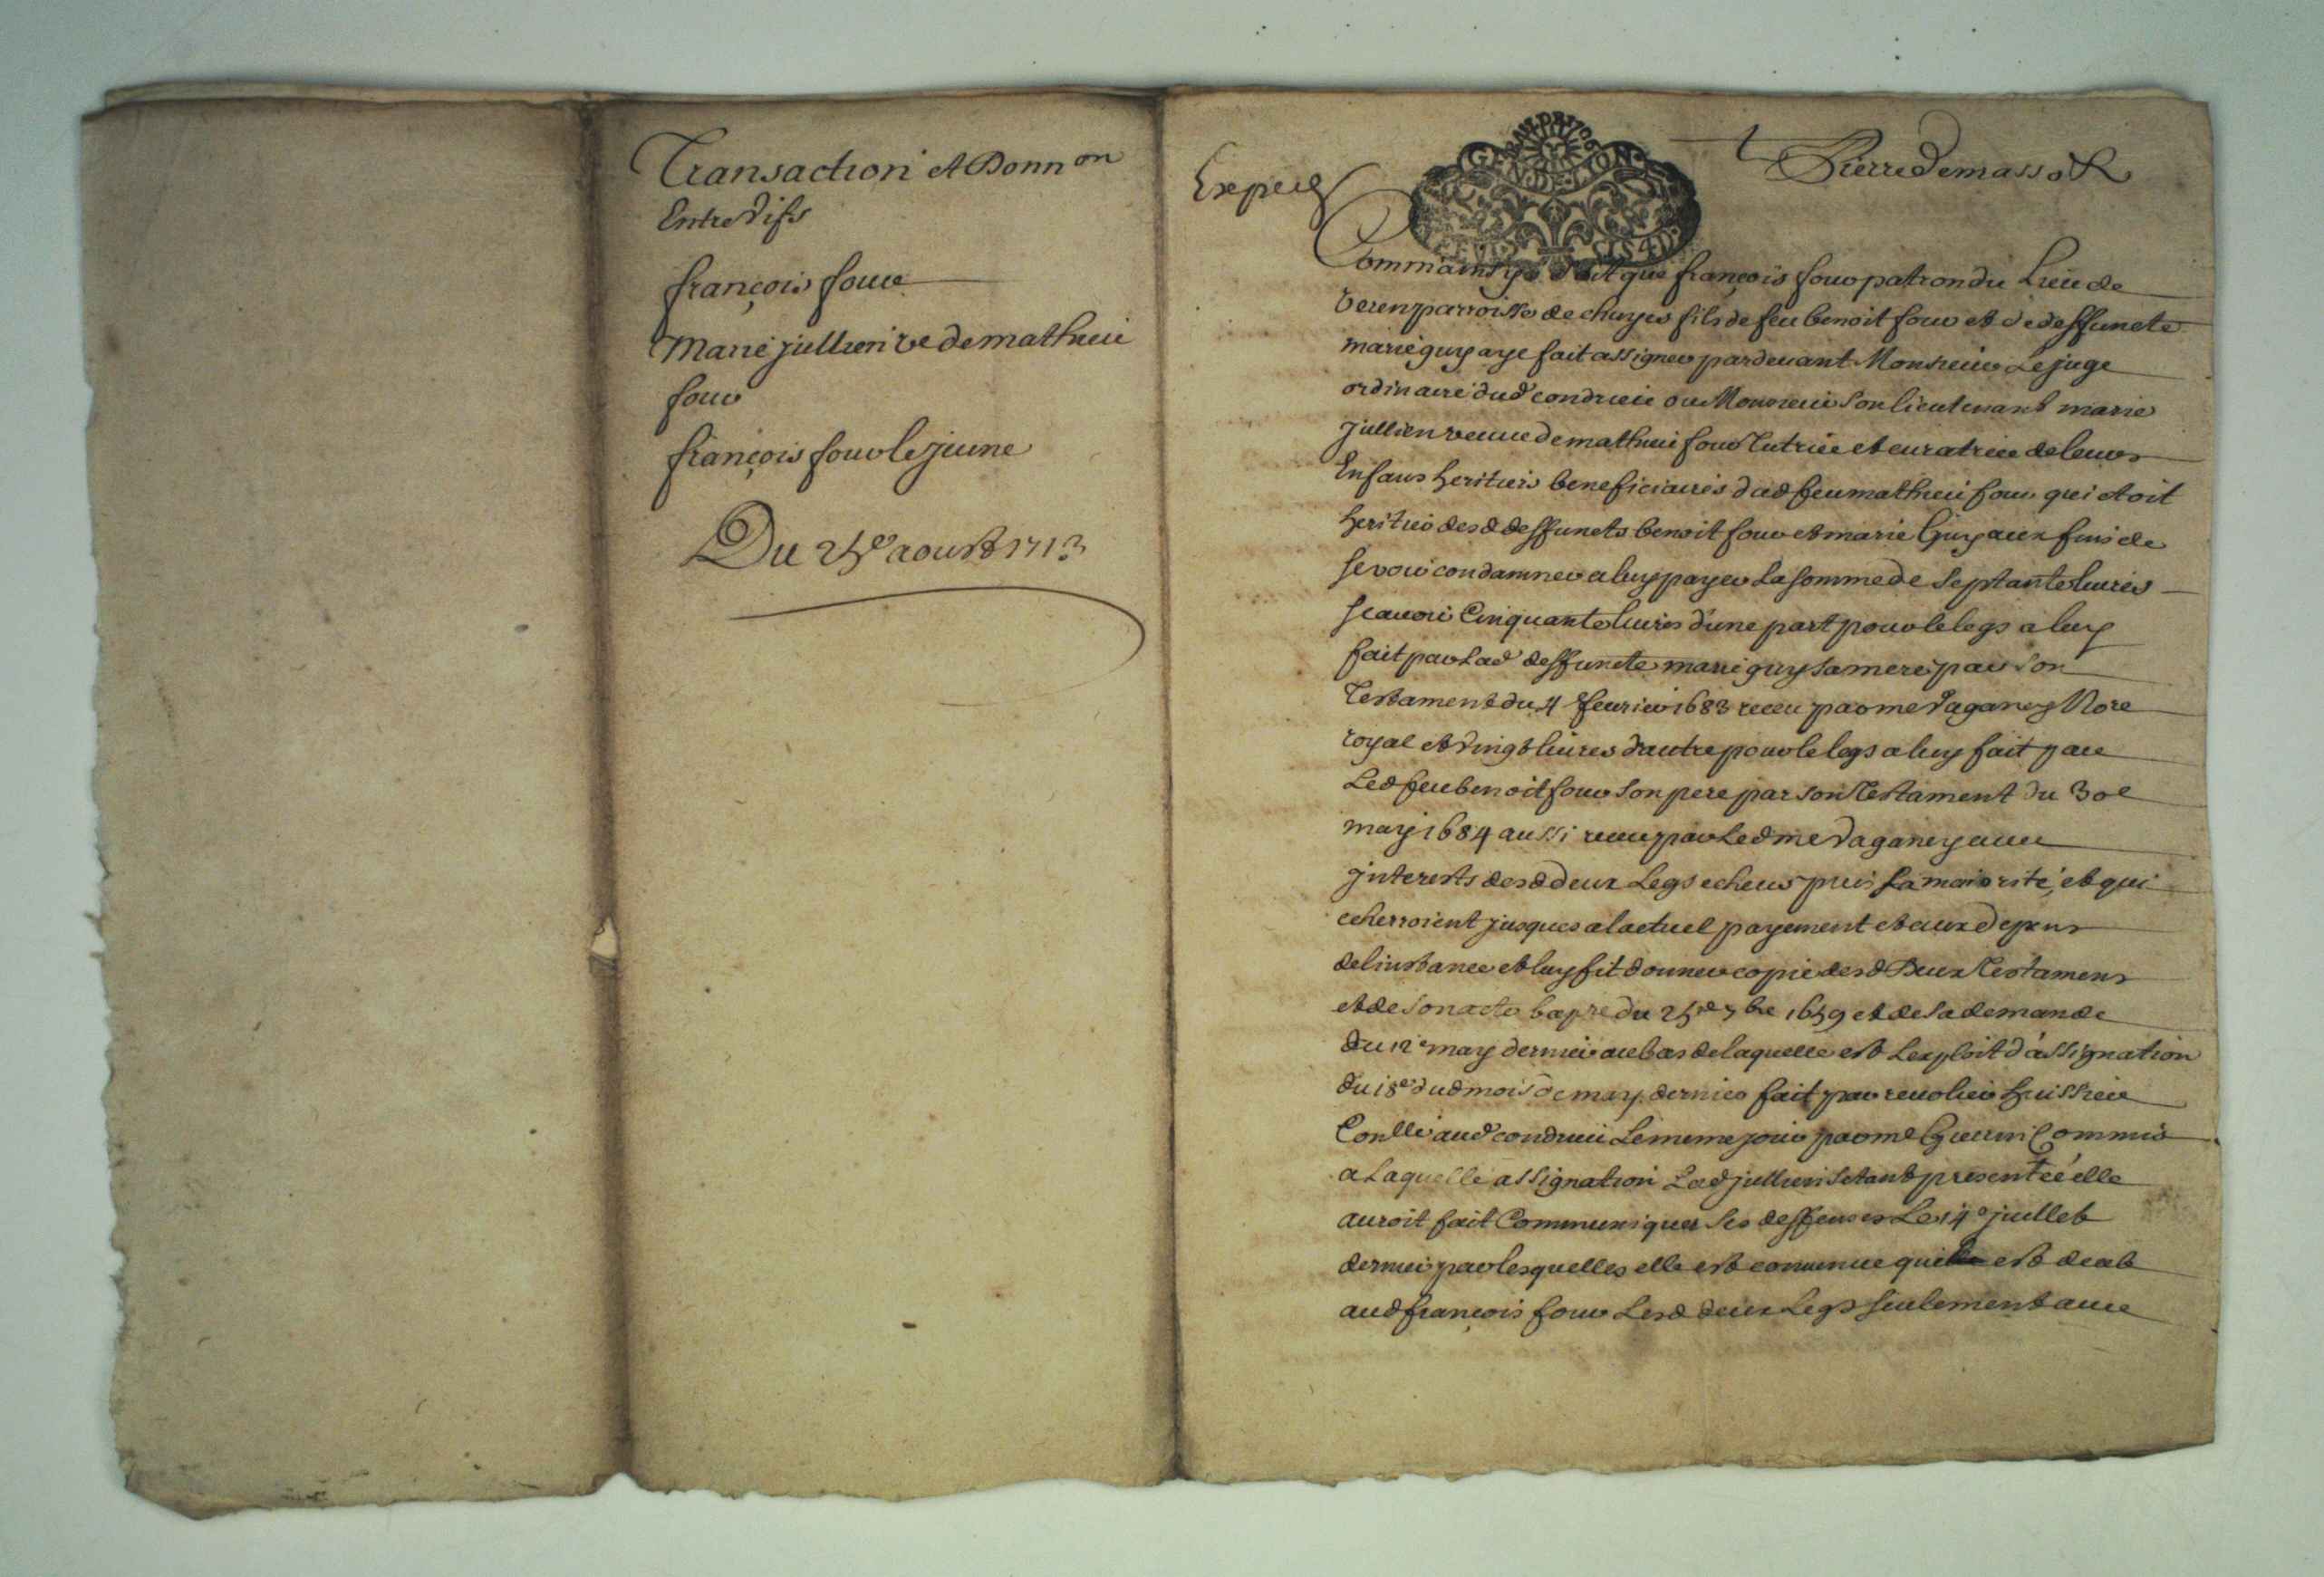 Transaction et Donn on
Entre
françois four
Marie jullien ve de mathieu
four
françois four le jeune
Du 25e aoust 1713
Pierre Demasso
GENDELION
4D
Comm ainsy soit que françois four patron du Lieu de
Veren parroisse de chuyes fils de feu benoit four et de deffuncte
marie guy aye fait assigner pardevant Monsieur Le juge
ordinaire dud condrieu ou Monsieur son lieutenant marie
jullien veuve de mathieu four Tutrice et curatrice de leurs
Enfans heritiers beneficiaires dud feu mathieu four qui etoit
heritier desd deffuncts benoit four et marie Guy aux fins de
se voir condamner a luy payer La somme de septante livres
scavoir Cinquante livres d'une part pour le legs a luy
fait par Lad deffuncte marie guy sa mere par son
Testament du 4 feurier 1683 receu par me Daganey Nore
royal et vingt livres d'autre pour le legs a luy fait par
Led feu benoit four son pere par son Testament du 30e
may 1684 aussi receu par Led me Daganey avec
jnterests desd deux Legs echeus puis sa maiorité, et qui
echerroient jusques a lactuel payement et aux depens
de linstance et luy fit donner copie desd Deux Testamens
et de son acte bapre du 25e 7bre 1659 et de sa demande
du 12e may dernier au bas de laquelle est Lexploit d'assignation
du 18e dud mois de may dernier fait par revolier huissier
Conlle aud condrieu Le meme jour par me Guerin Commis
a Laquelle assignation Lad jullien s'etant presentée elle
auroit fait Communiquer ses deffenses Le 14e juillet
dernier par lesquelles elle est convenue quil est deub
aud françois four Lesd deux Legs seulement avec